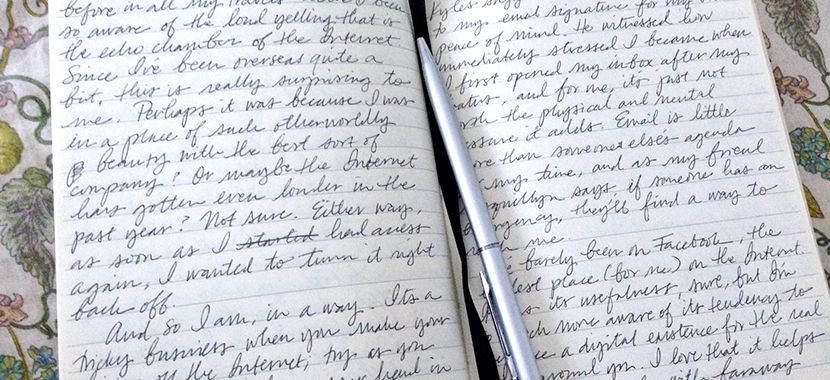 before in all my travels I been
so aware of the loud yelling that is
the echo chamber of the Internet
Since I've been overseas quite a
bit, this is really surprising to
me. Perhaps it was because I was
in a place of such otherworldly
beauty with the best sort of
company? Or maybe the Internet
has gotten even louder in the
past year? Not sure. Either way,
as soon as I started had access
again, I wanted to turn it right
back off.
And so I am, in a way. It's a
tricky business when you make your
off the Internet, try as you
head in
Kyle's
to my email signature for my
peace of mind. He witnessed how
immediately stressed I became when
I first opened my inbox after my
hiatus, and for me, it's just not
the physical and mental
it adds. Email is little
than someone else's agenda
my time, and as my friend
says, if someone has an
they'll find a way to
me
barely been on Facebook, the
place (for me) on the Internet.
its usefulness, sure, but I'm
much more aware of its tendency to
a digital existence for the real
around you. I love that it helps
with faraway